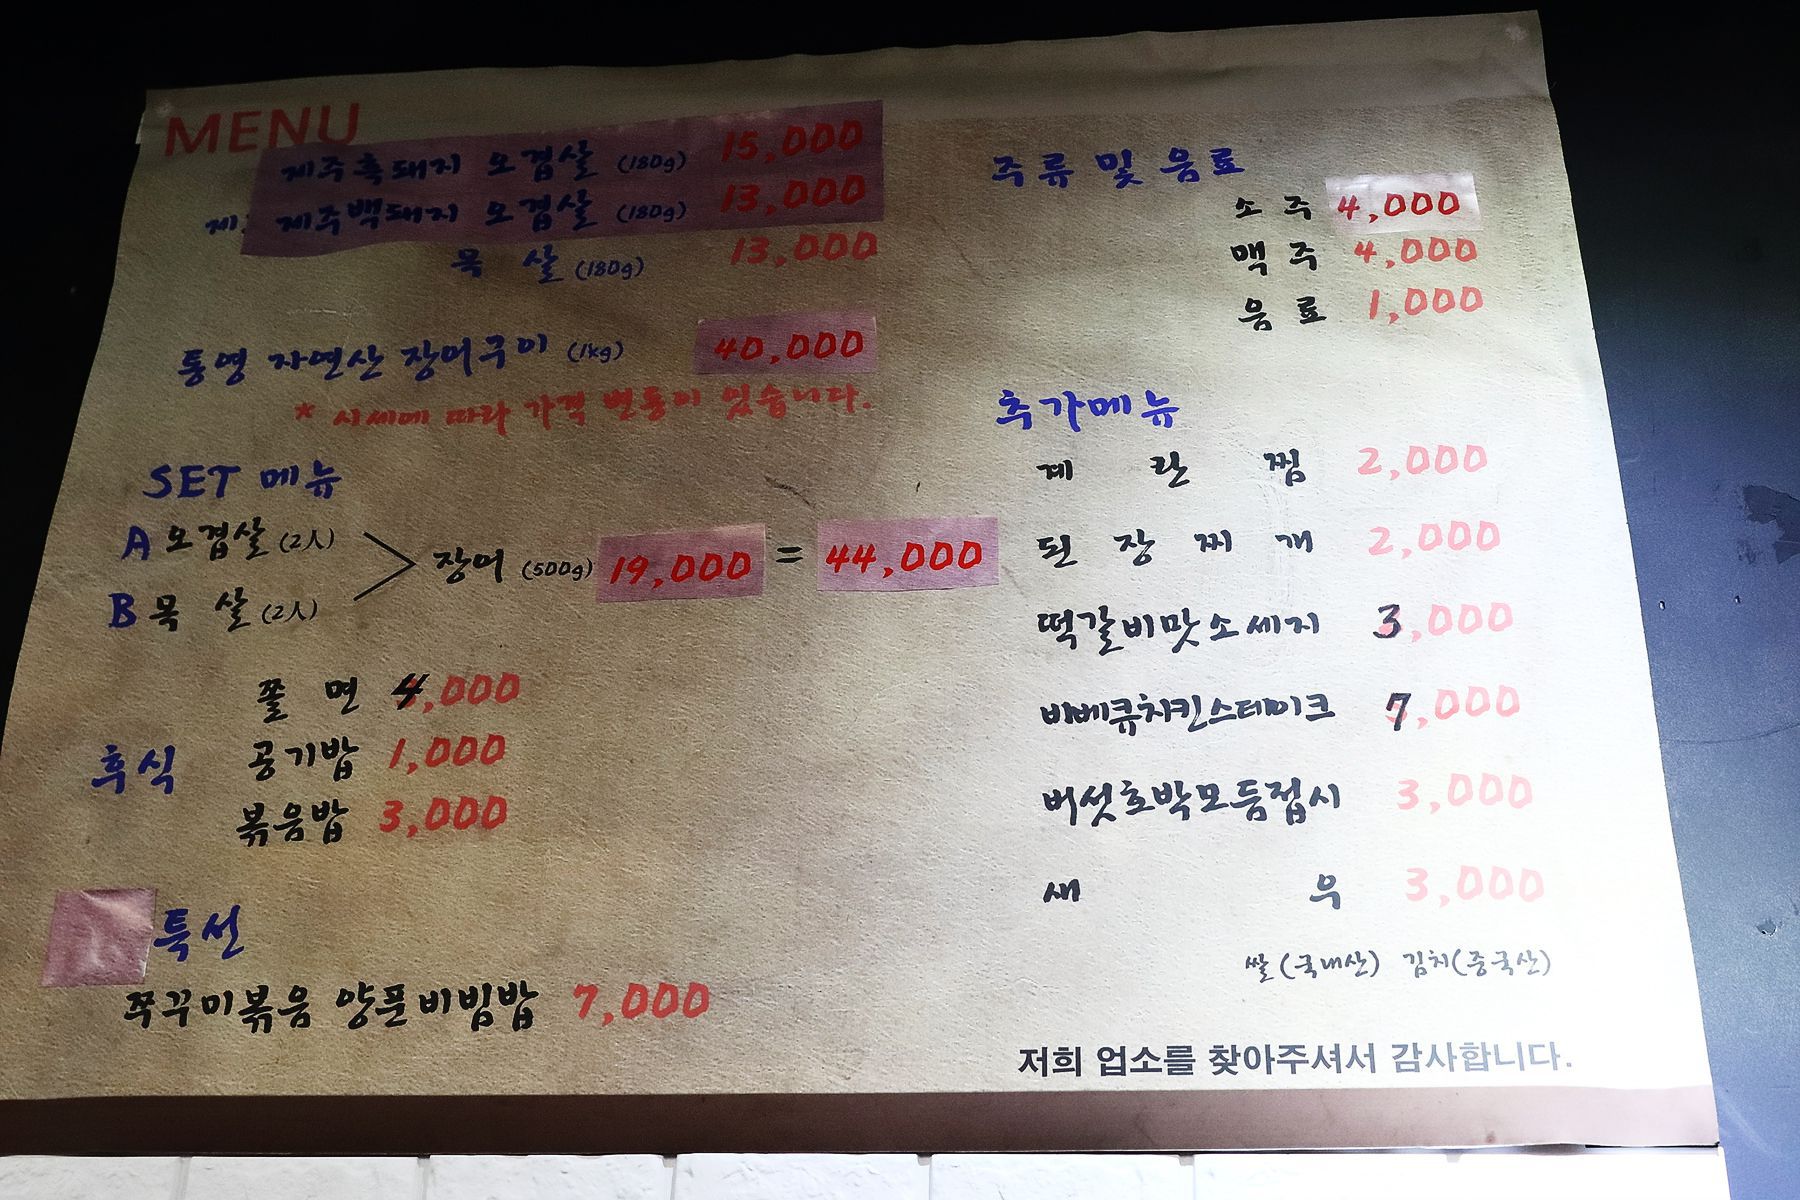 MENU
제주흑돼지 오겹살 (180g) 15,000
제주백돼지 오겹살 (180g) 13,000
목 살 (180g) 13,000
통영 자연산 장어구이 (1kg) 40,000
* 시세에 따라 가격 변동이 있습니다.
SET 메뉴
A 오겹살 (2人)
B 목 살 (2人)
장어 (500g) 19,000 = 44,000
후식
쫄 면 4,000
공기밥 1,000
볶음밥 3,000
특선
쭈꾸미볶음 양푼비빔밥 7,000
주류 및 음료
소 주 4,000
맥 주 4,000
음 료 1,000
추가메뉴
계 란 찜 2,000
된 장 찌 개 2,000
떡갈비맛소세지 3,000
바베큐치킨스테이크 7,000
버섯호박모듬접시 3,000
새 우 3,000
쌀(국내산) 김치(중국산)
저희 업소를 찾아주셔서 감사합니다.